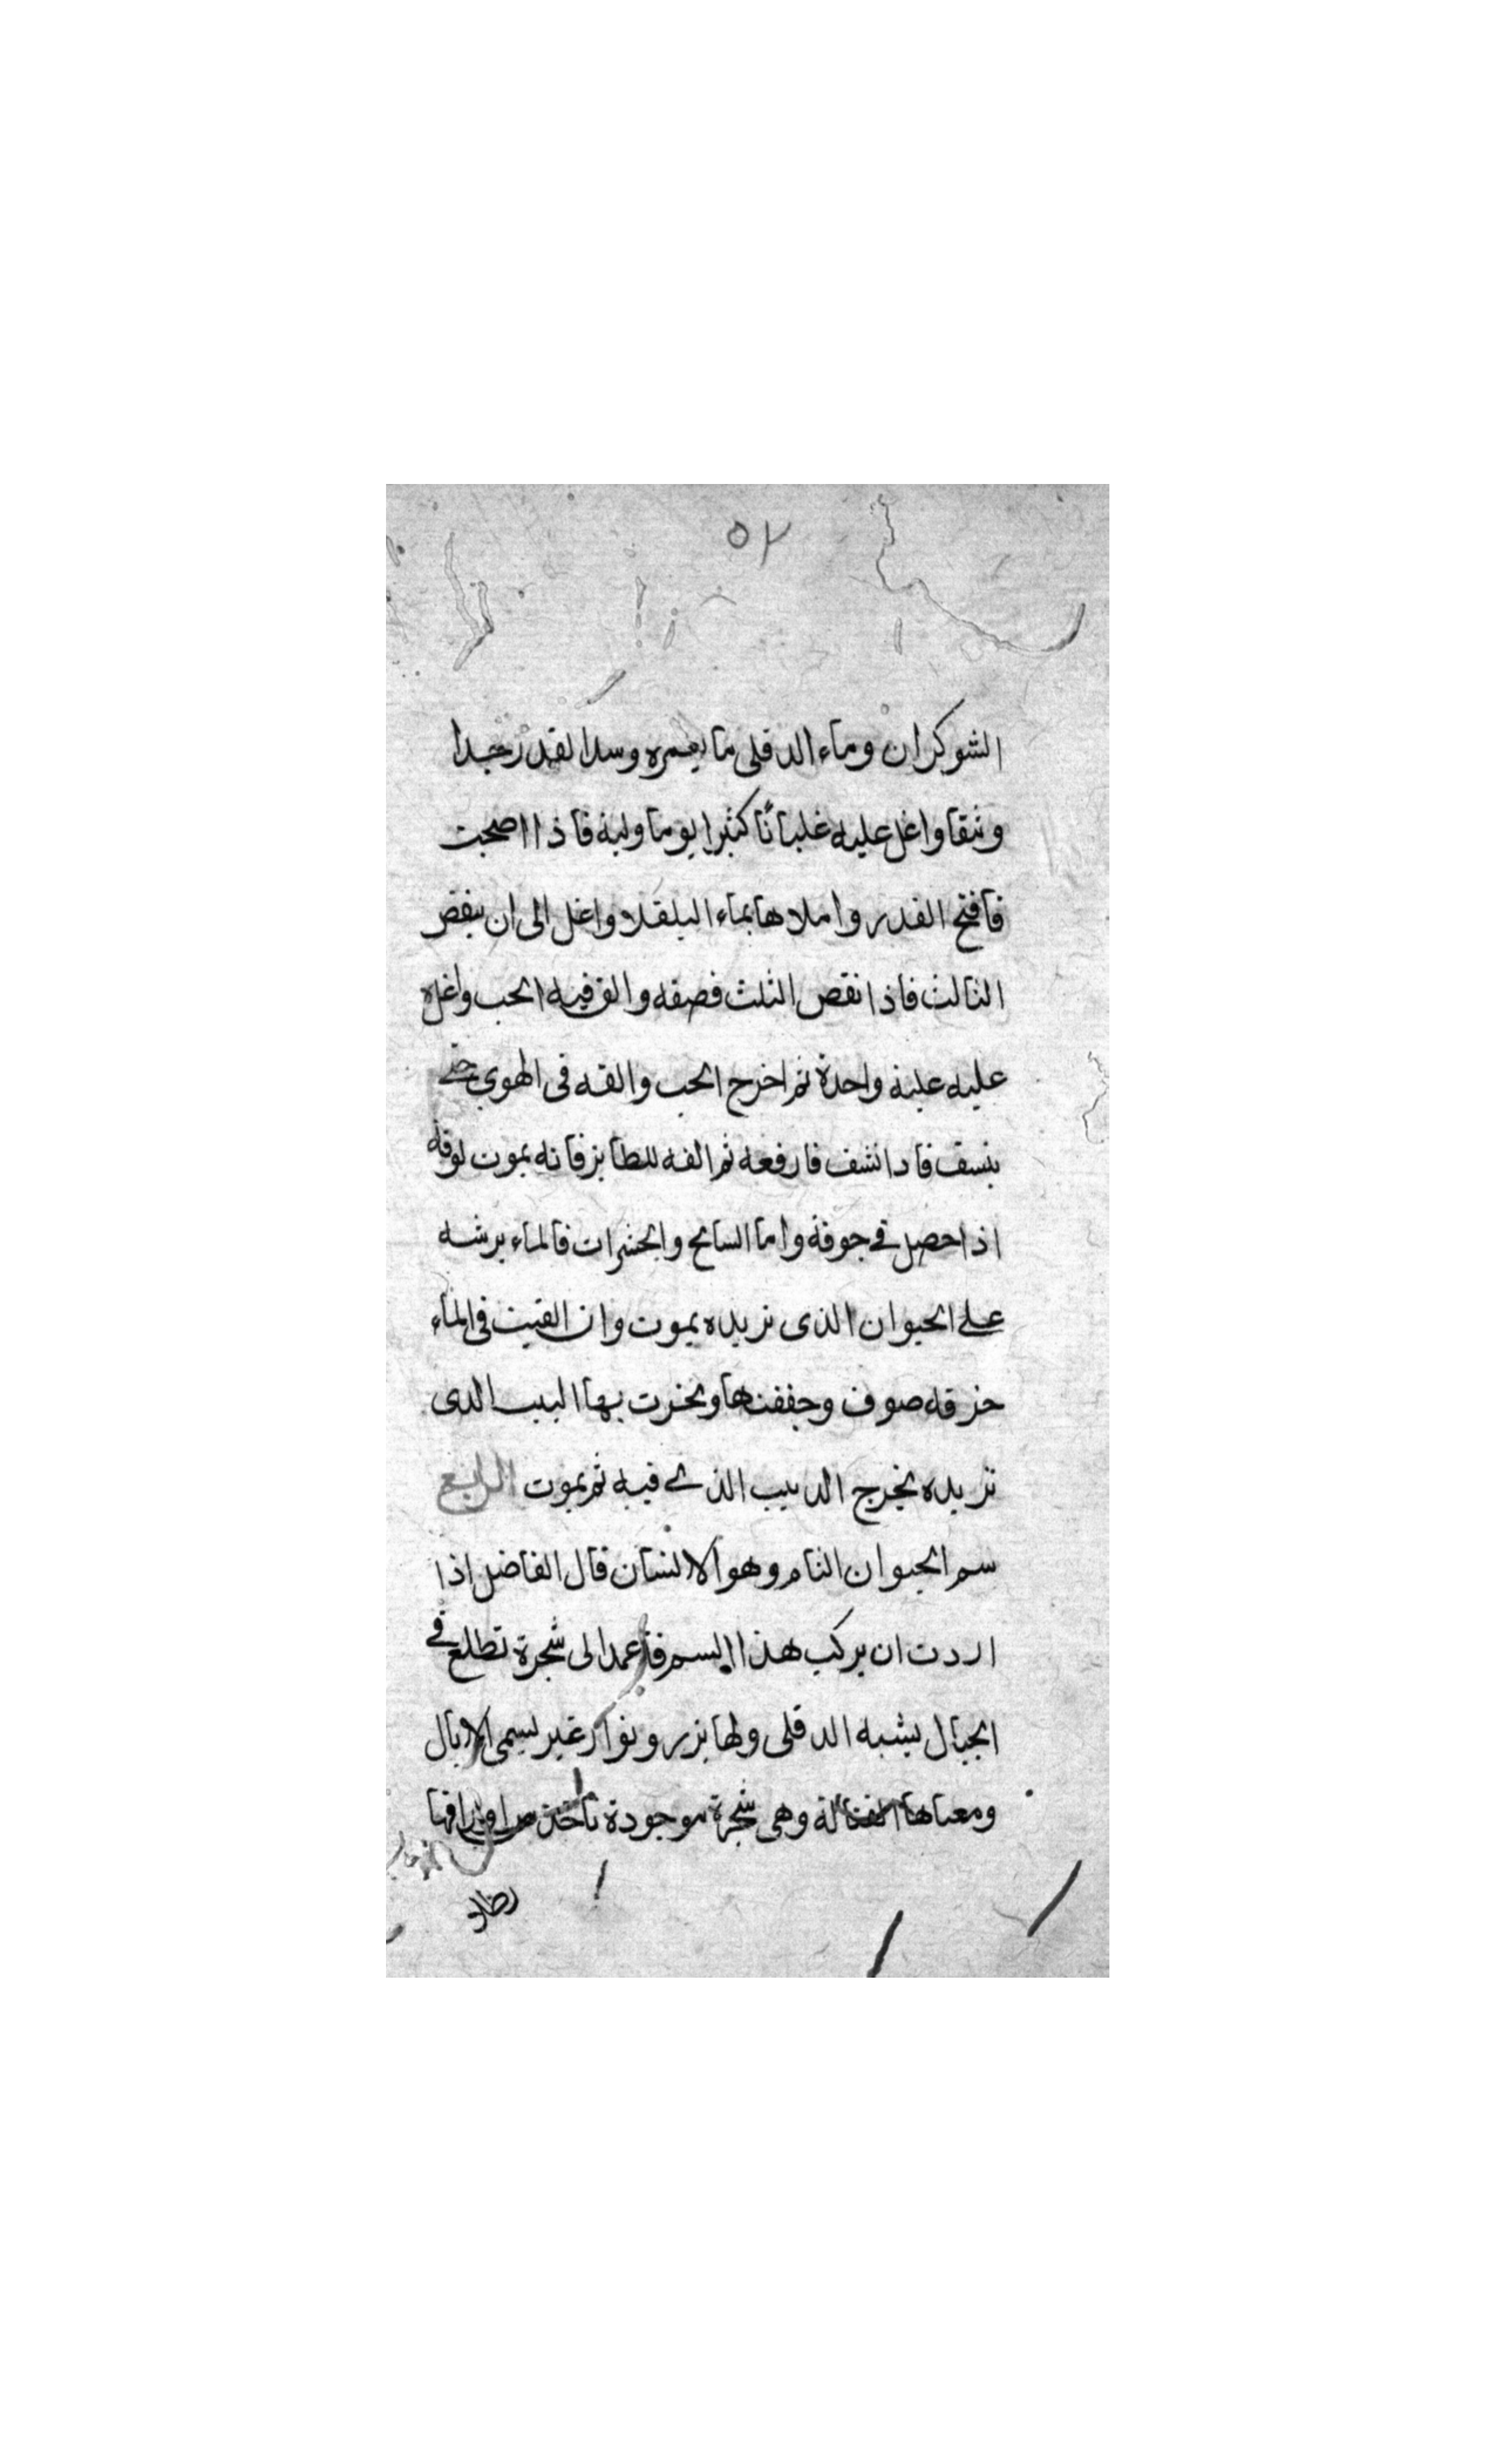 ٥٢
الشوكران وماء الدفلى ما يغمره وسد القدر جيدا
وثيقا واغل عليه غليانًا كثيرا يوما وليلة فاذا اصبحت
فافتح القدر واملاها بماء البلقلا واغل الى ان ينقص
الثالث فاذا نقص الثلث فصفه والق فيه الحب واغله
عليه غلية واحدة ثم اخرج الحب والقه فى الهوي حتى
ينشف فاذا نشف فارفعه ثم القه للطايز فانه يموت لوقته
اذا حصل في جوفه واما السايح والحشرات فالماء يرشه
على الحيوان الذى تريده يموت وان القيت فى الماء
خرقه صوف وجففتها وبخرت بها البيت الذى
تريده يخرج الدبيب الذي فيه ثم يموت الرابع
سم الحيوان التام وهو الانسان قال الفاضل اذا
اردت ان يركب هذا السم فاعمد الى شجرة تطلع في
الجبال يشبه الدفلى ولها بزر ونوار غير يسمى الابال
ومعناها القتالة وهى شجرة موجودة تاخذ من اوراقها
رطلا